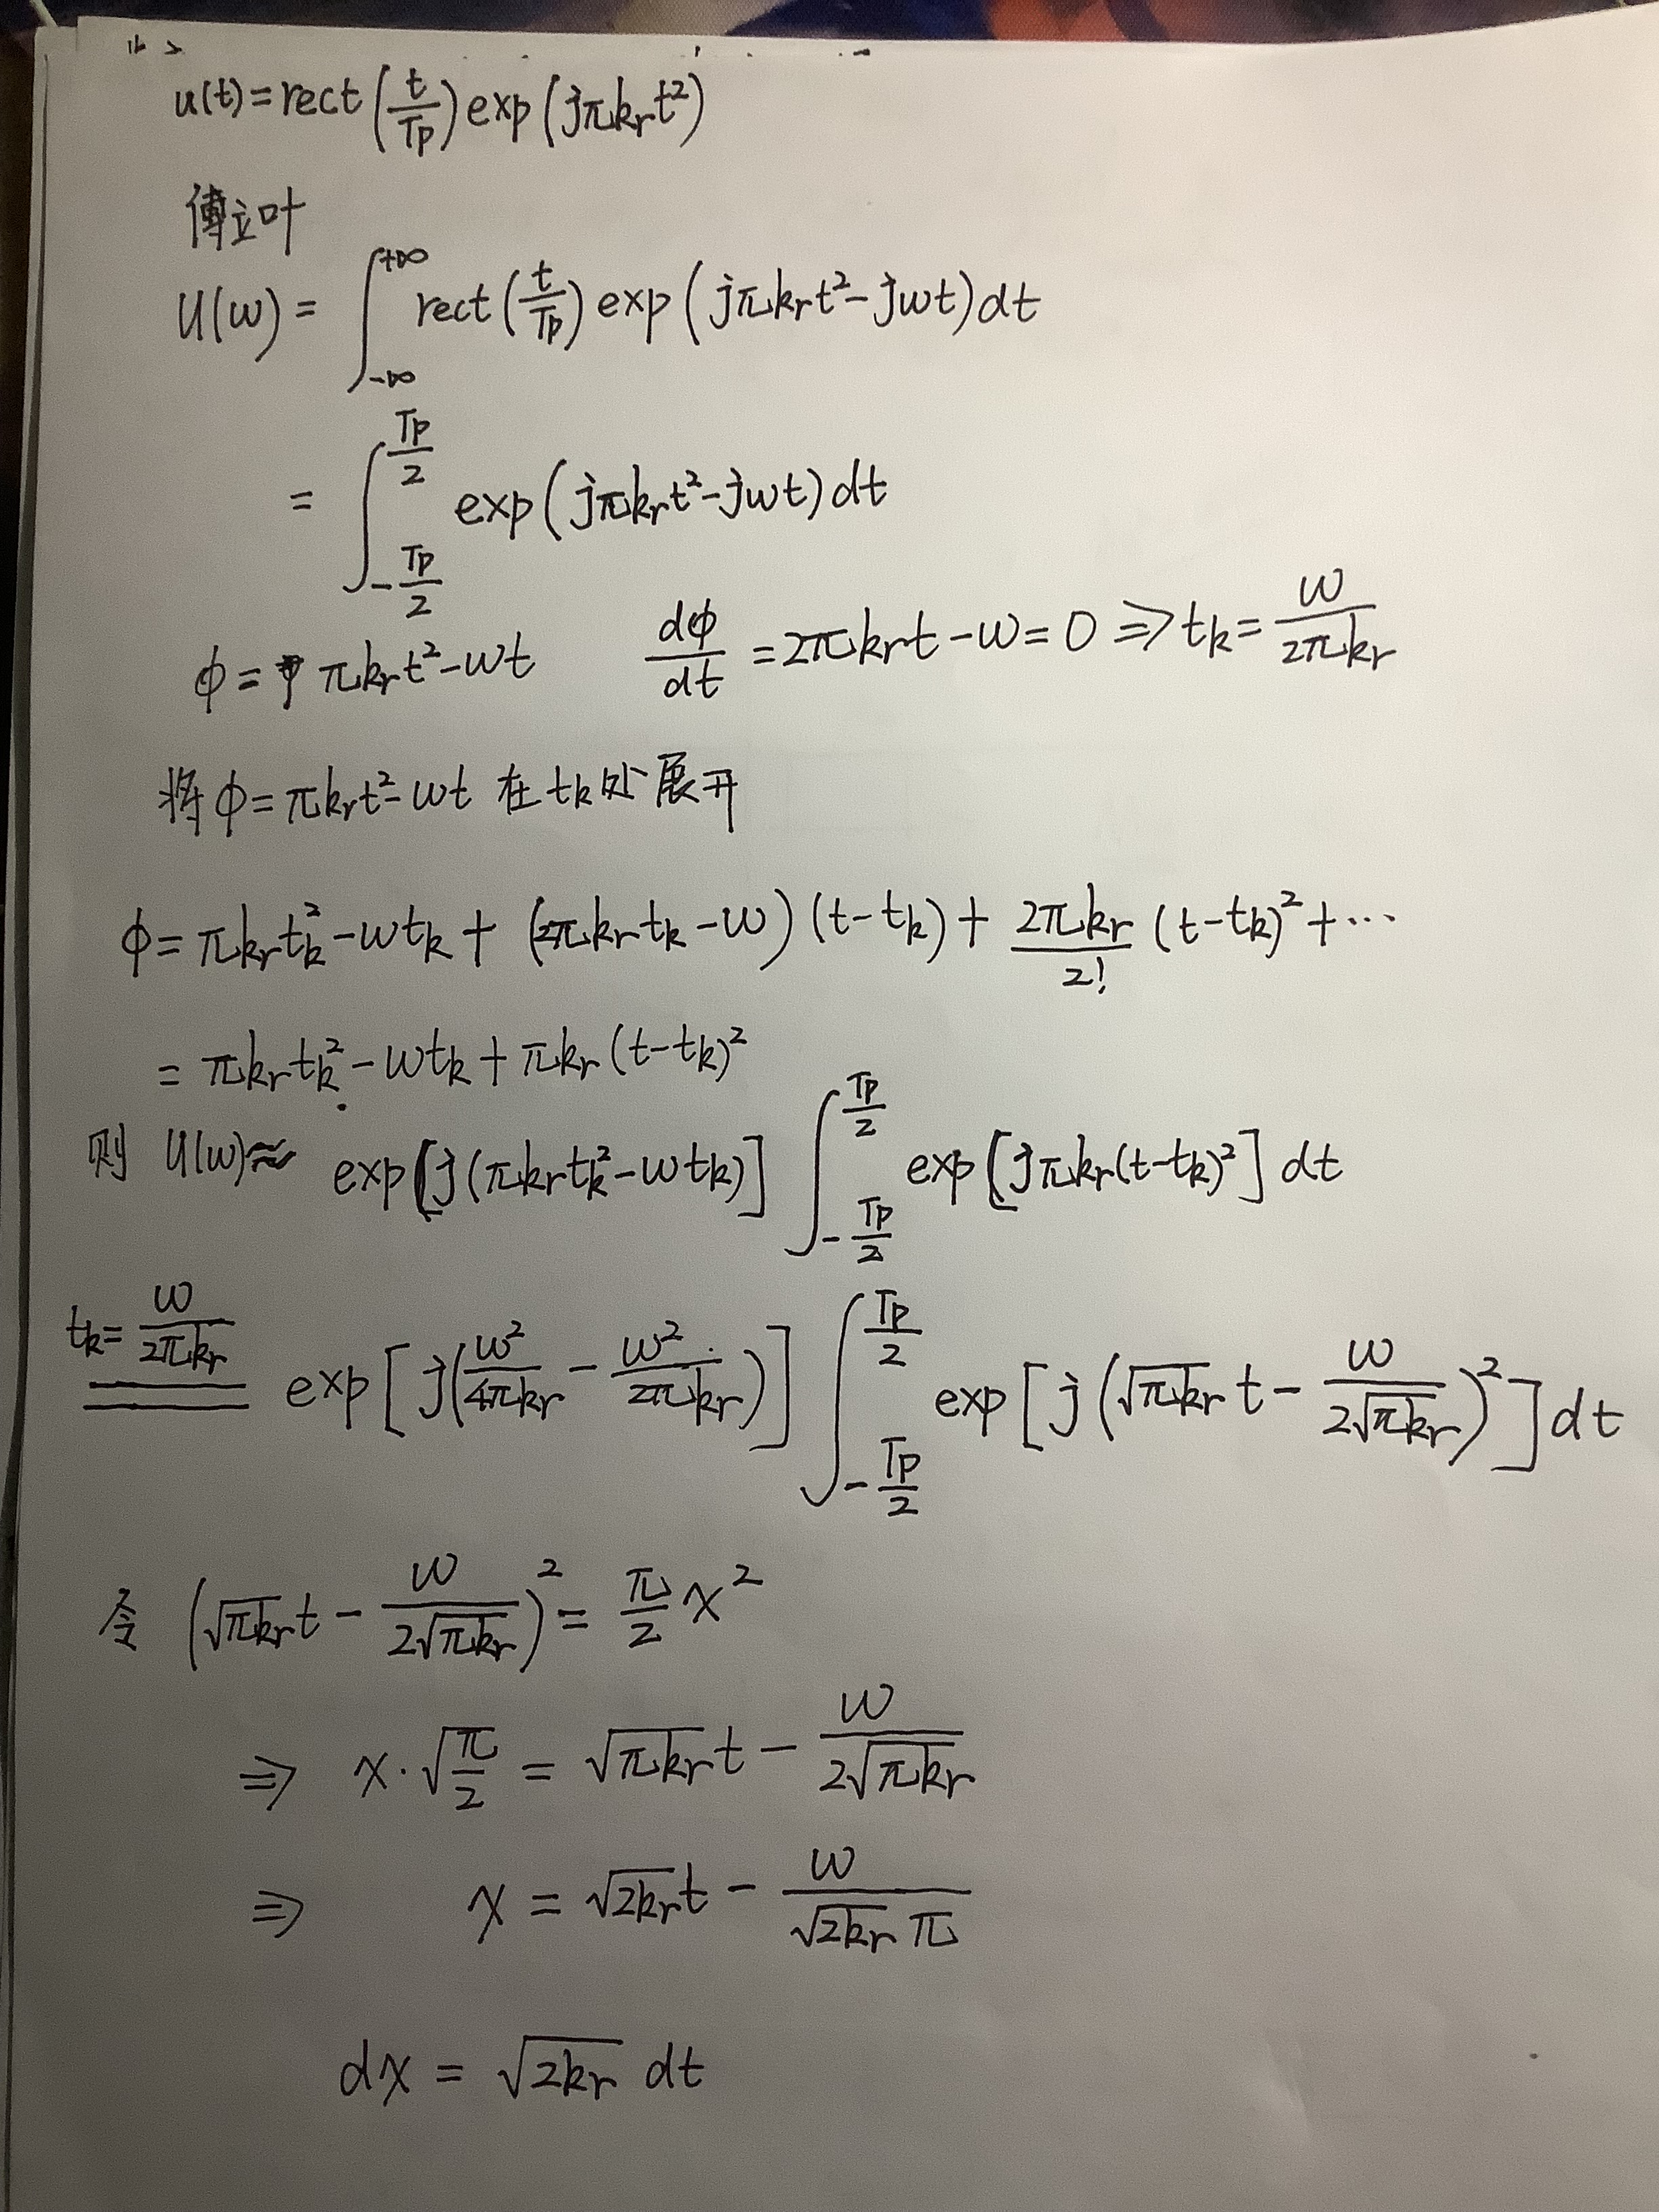 u(t) = rect(t/Tp) exp(jπkrt²)
傅立叶
U(w) = ∫_{-∞}^{+∞} rect(t/Tp) exp(jπkrt² - jwt) dt
= ∫_{-Tp/2}^{Tp/2} exp(jπkrt² - jwt) dt
ϕ = πkrt² - wt    dϕ/dt = 2πkrt - w = 0 ⇒ tk = w/(2πkr)
将 ϕ = πkrt² - wt 在 tk 处展开
ϕ = πkrtk² - wtk + (2πkrtk - w)(t - tk) + (2πkr/2!)(t - tk)² + ···
= πkrtk² - wtk + πkr(t - tk)²
则 U(w) ≈ exp[j(πkrtk² - wtk)] ∫_{-Tp/2}^{Tp/2} exp[jπkr(t - tk)²] dt
tk = w/(2πkr) == exp[j(w²/(4πkr) - w²/(2πkr))] ∫_{-Tp/2}^{Tp/2} exp[j(√(πkr) t - w/(2√(πkr)))²] dt
令 (√(πkr) t - w/(2√(πkr)))² = (π/2) x²
⇒ x·√(π/2) = √(πkr) t - w/(2√(πkr))
⇒ x = √(2kr) t - w/(√(2kr) π)
dx = √(2kr) dt